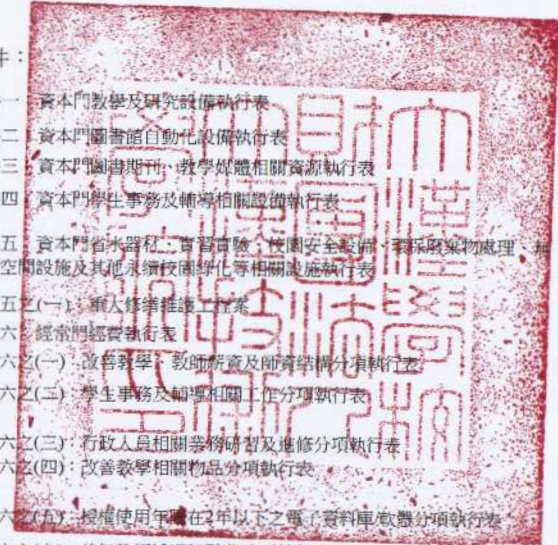 件：
一：資本門教學及研究設備執行表
二：資本門圖書館自動化設備執行表
三：資本門圖書期刊、教學媒體相關資源執行表
四：資本門學生事務及輔導相關設備執行表
五：資本門省水器材、實習實驗、校園安全設備、環保廢棄物處理、
空間設施及其他永續校園綠化等相關設施執行表
五之(一)：重大修繕維護工程案
六：經常門經費執行表
六之(一)：改善教學、教師薪資及師資結構分項執行表
六之(二)：學生事務及輔導相關工作分項執行表
六之(三)：行政人員相關業務研習及進修分項執行表
六之(四)：改善教學相關物品分項執行表
六之(五)：授權使用年限在2年以下之電子資料庫/軟體分項執行表